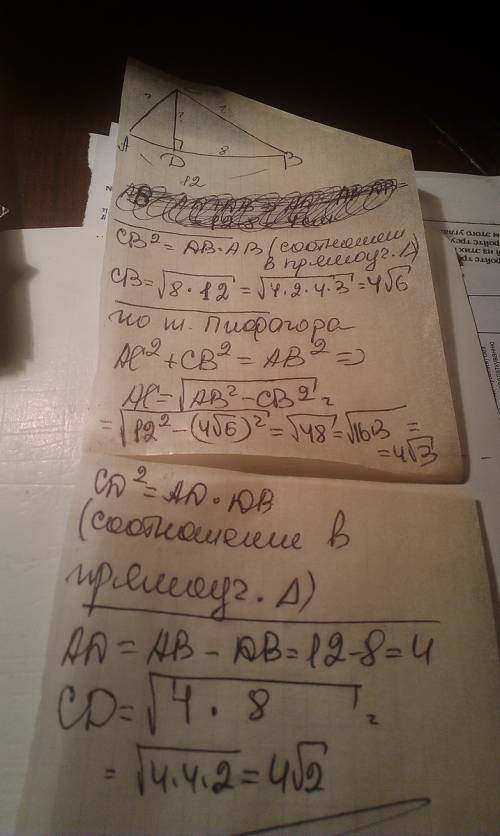 C
? ? ?
A D 8 B
12
CB² = AB·AB (соотношен
в прямоуг. Δ)
CB = √8·12 = √4·2·4·3 = 4√6
по т. Пифагора
AC² + CB² = AB² =>
AC = √AB² - CB² =
= √12² - (4√6)² = √48 = √16·3 =
= 4√3
CD² = AD·DB
(соотношение в
прямоуг. Δ)
AD = AB - DB = 12 - 8 = 4
CD = √4 · 8 =
= √4·4·2 = 4√2